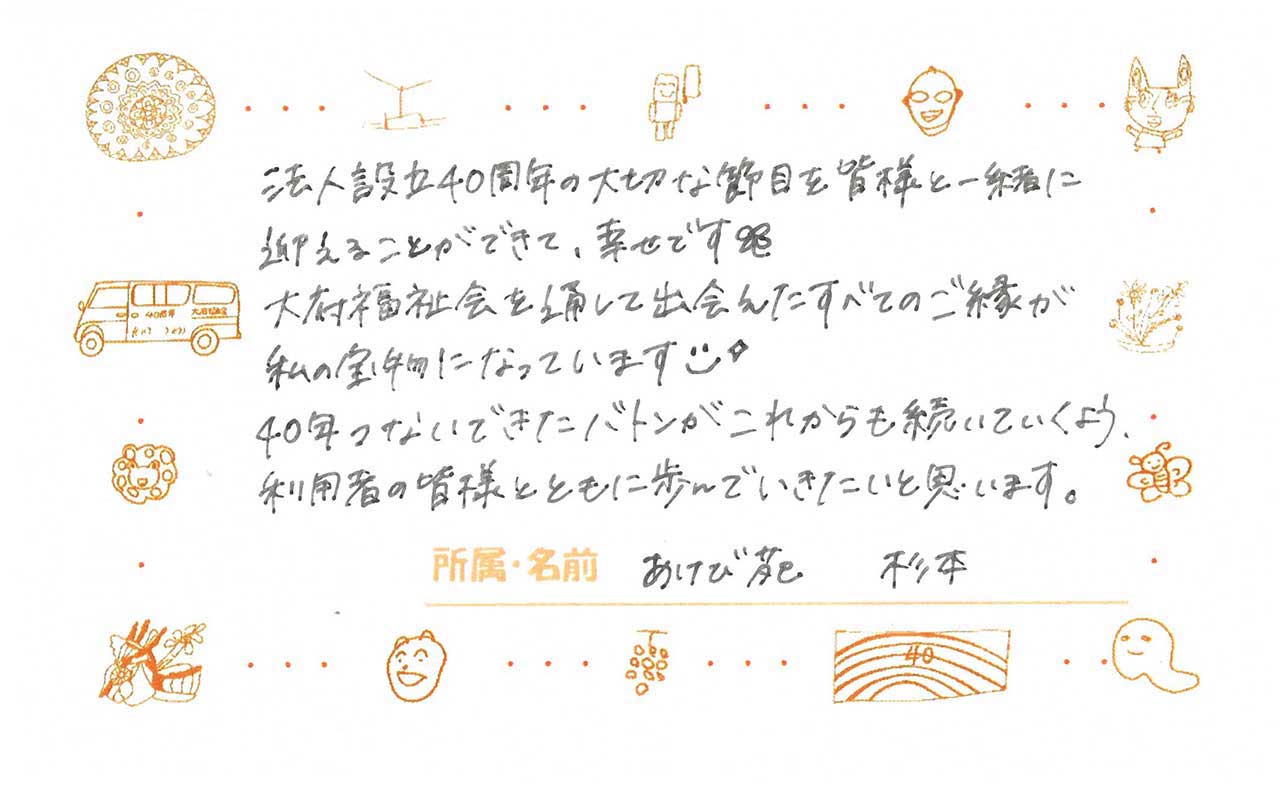 法人設立40周年の大切な節目を皆様と一緒に
迎えることができて、幸せです
大府福祉会を通して出会えたすべてのご縁が
私の宝物になっています
40年つないできたバトンがこれからも続いていくよう、
利用者の皆様とともに歩んでいきたいと思います。
所属・名前 あけび苑 杉本
40周年 大府福祉会
40